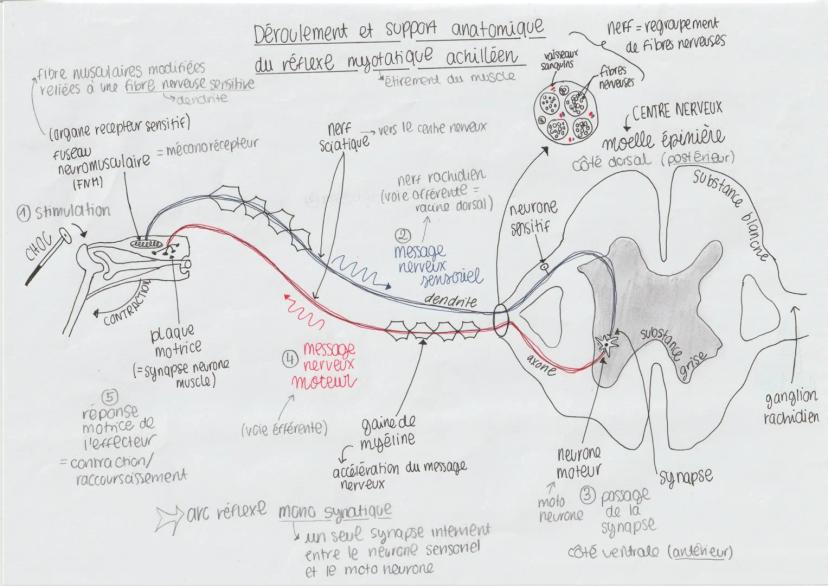 Déroulement et support anatomique
du réflexe myotatique achilléen
étirement du muscle
nerf = regroupement
de fibres nerveuses
vaisseaux
sanguins
fibres
nerveuses
fibre musculaires modifiées
reliées à une fibre nerveuse sensitive
dendrite
(organe recepteur sensitif)
fuseau
neuromusculaire = mécanorécepteur
(FNM)
① stimulation
CHOC
CONTRACTION
plaque
motrice
(= synapse neurone
muscle)
nerf
sciatique → vers le centre nerveux
nerf rachidien
(voie afférente =
racine dorsal)
② message
nerveux
sensoriel
dendrite
neurone
sensitif
CENTRE NERVEUX
moelle épinière
côté dorsal (postérieur)
substance blanche
substance
grise
axone
ganglion
rachidien
④ message
nerveux
moteur
(voie éfférente)
gaine de
myéline
accélération du message
nerveux
⑤
réponse
motrice de
l'effecteur
= contraction/
raccourssissement
neurone
moteur
moto
neurone
synapse
③ passage
de la
synapse
côté ventrale (antérieur)
arc réflexe mono synatique
un seul synapse intervient
entre le neurone sensoriel
et le moto neurone